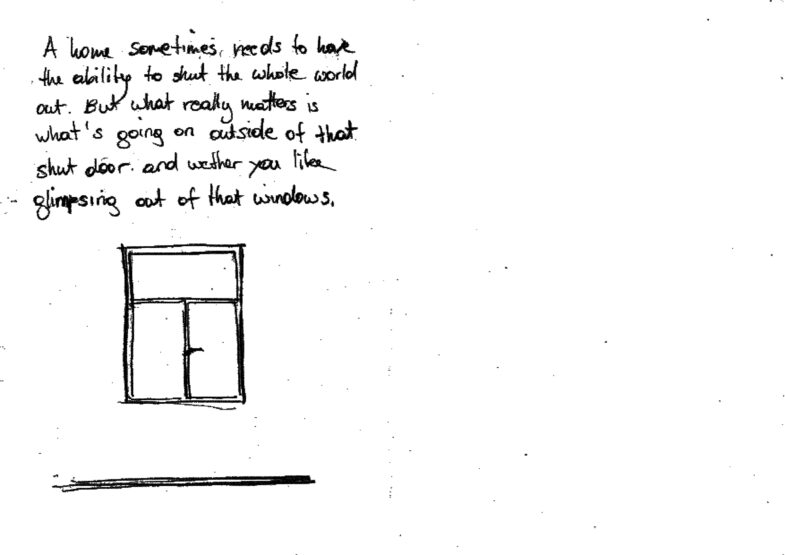 A home sometimes, needs to have
the ability to shut the whole world
out. But what really matters is
what's going on outside of that
shut door. and wether you like
glimpsing out of that windows.